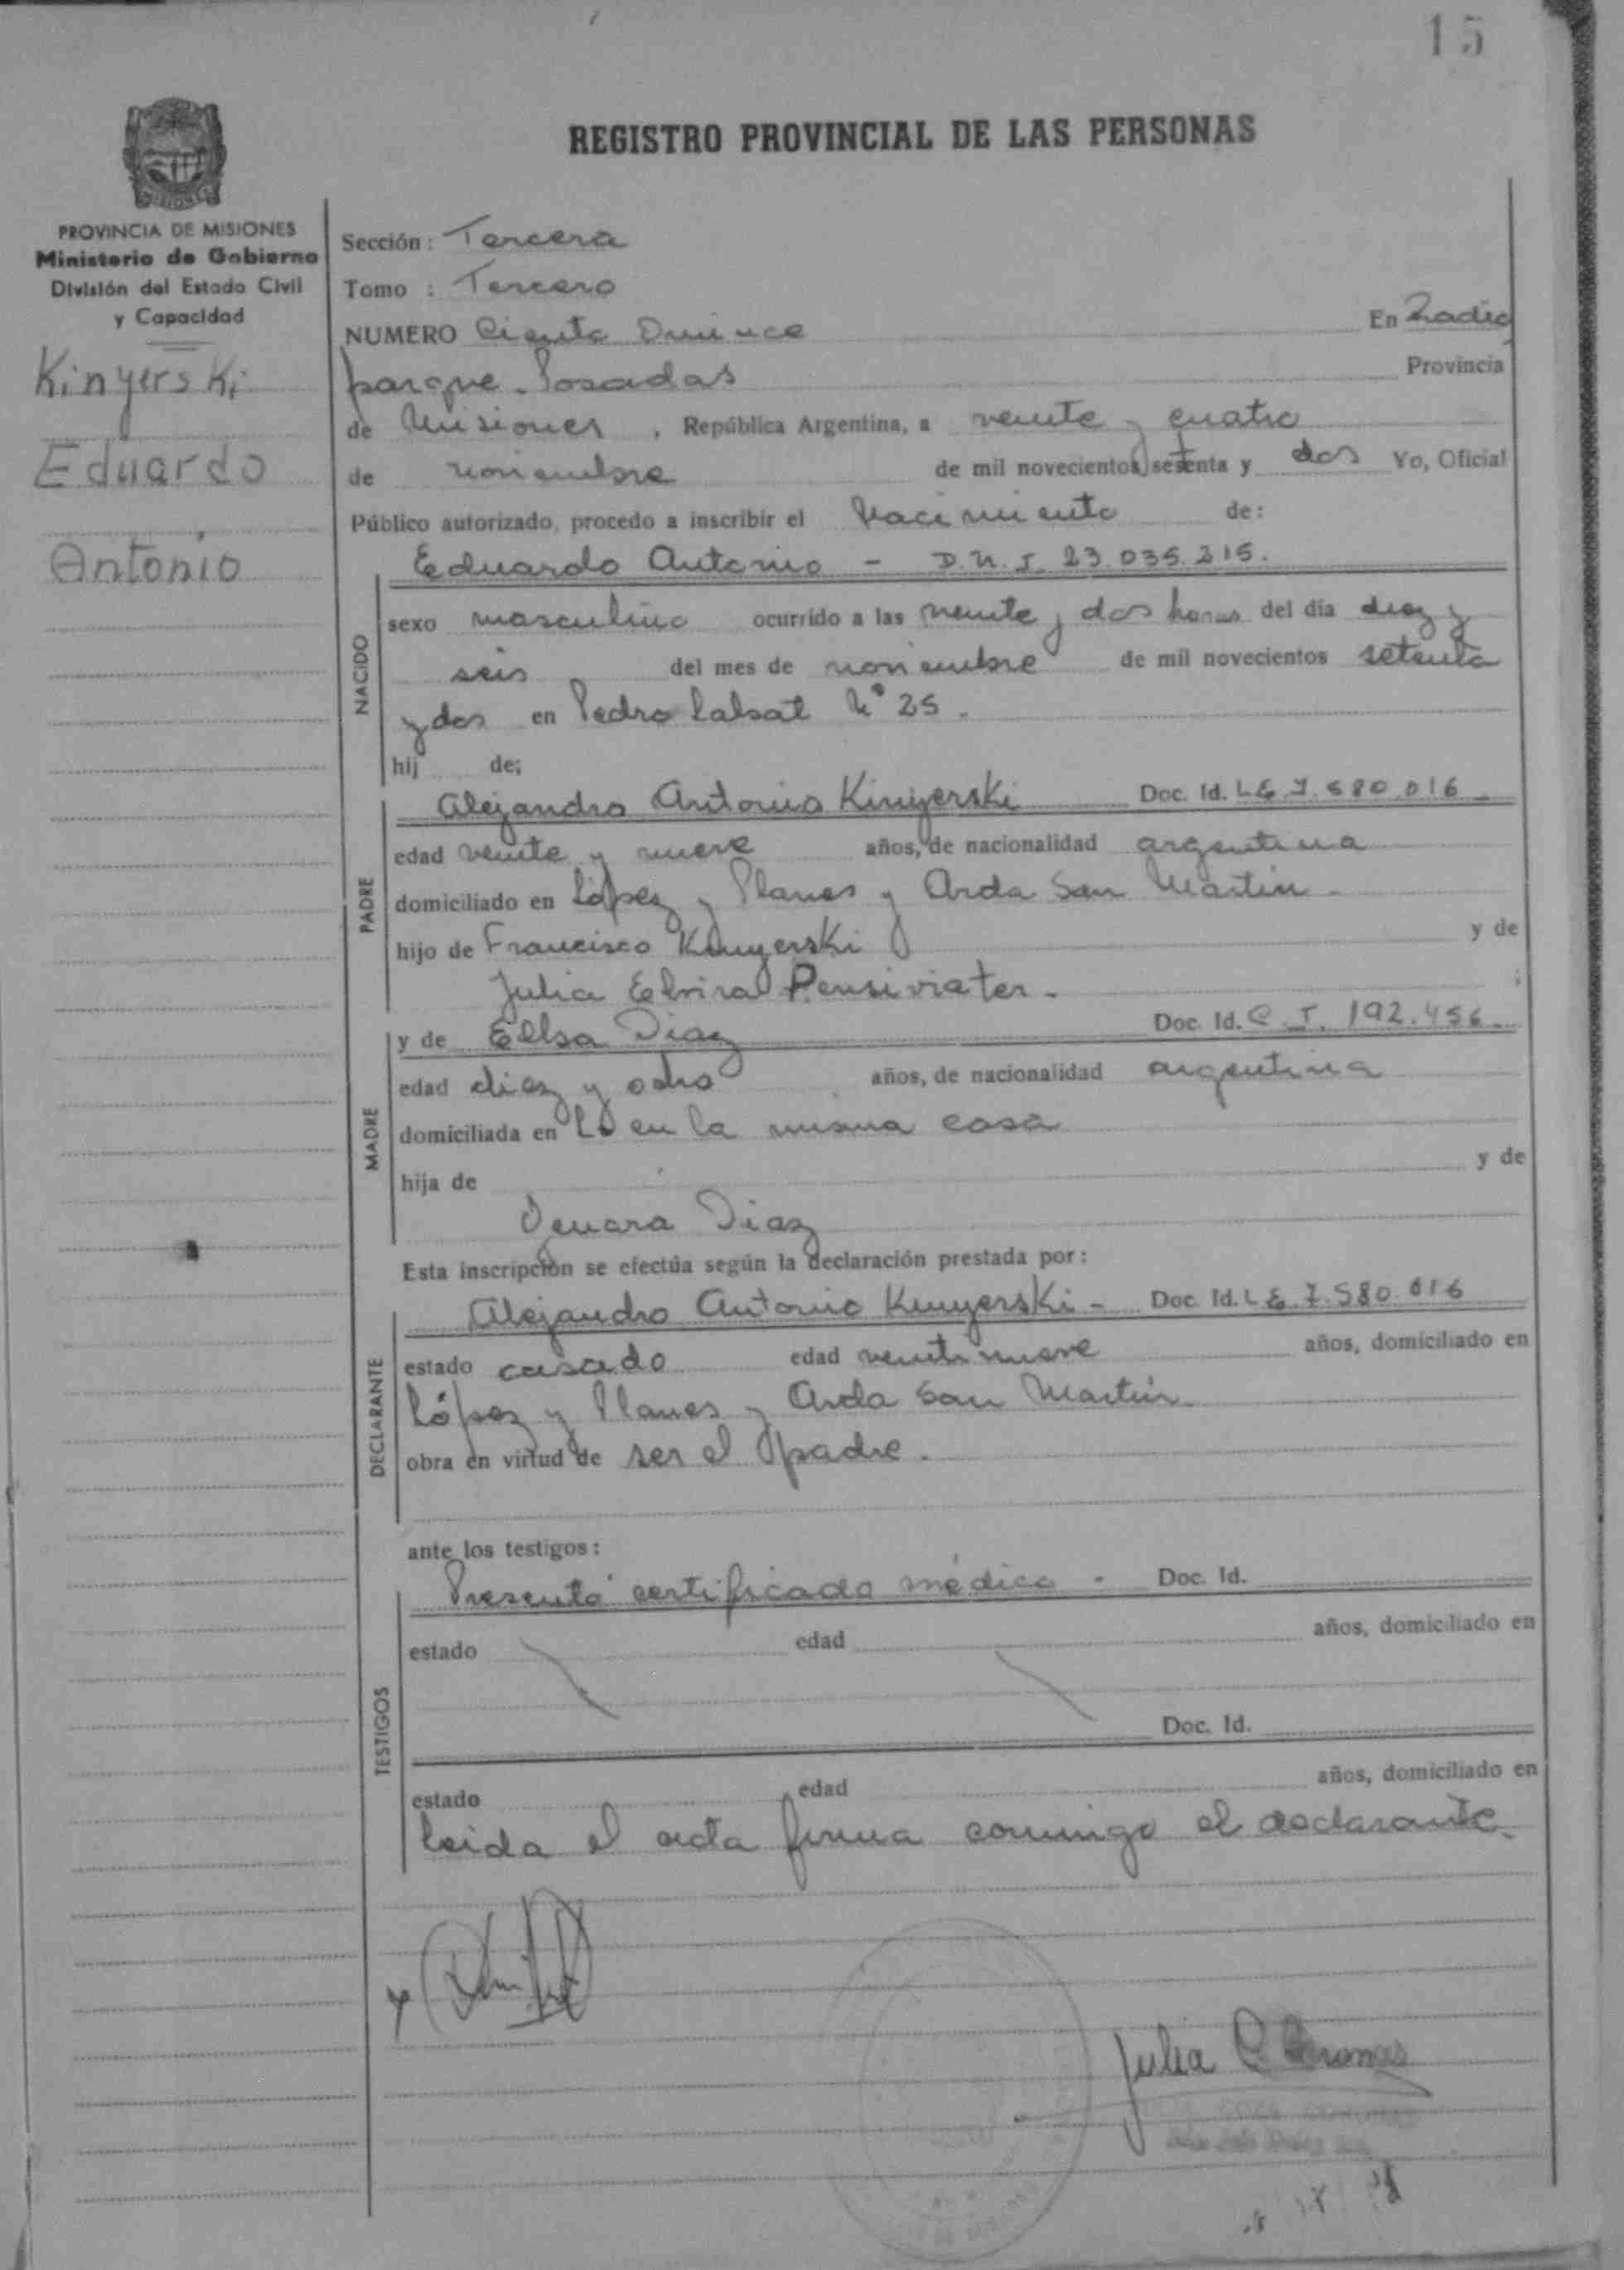 15
REGISTRO PROVINCIAL DE LAS PERSONAS
MISIONES
PROVINCIA DE MISIONES
Ministerio de Gobierno
División del Estado Civil
y Capacidad
Kinyerski
Eduardo
Antonio
Sección: Tercera
Tomo : Tercero
NUMERO Ciento Quince En Zadic
parque. Posadas Provincia
de Misiones , República Argentina, a veinte y cuatro
de noviembre de mil novecientos setenta y dos Yo, Oficial
Público autorizado, procedo a inscribir el Nacimiento de:
Eduardo Antonio - D.N.I. 23.035.215.
NACIDO
sexo masculino ocurrido a las veinte y dos horas del día diez y
seis del mes de noviembre de mil novecientos setenta
y dos en Pedro N° 25.
hij de;
PADRE
Alejandro Antonio Kinyerski Doc. Id. LE 7.580.016
edad veinte y nueve años, de nacionalidad argentina
domiciliado en López y Planes y Avda San Martín
hijo de Francisco Kinyerski y de
Julia Elvira ;
MADRE
y de Ellsa Diaz Doc. Id. C.I. 192.456
edad diez y ocho años, de nacionalidad argentina
domiciliada en en la misma casa
hija de y de
Genara Diaz
Esta inscripción se efectúa según la declaración prestada por:
DECLARANTE
Alejandro Antonio Kinyerski - Doc. Id. LE 7.580.016
estado casado edad veintinueve años, domiciliado en
López y Planes y Avda San Martín.
obra en virtud de ser el padre.
ante los testigos:
TESTIGOS
Presentó certificado médico - Doc. Id.
estado edad años, domiciliado en
Doc. Id.
estado edad años, domiciliado en
leida el acta firma conmigo el declarante.
Julia